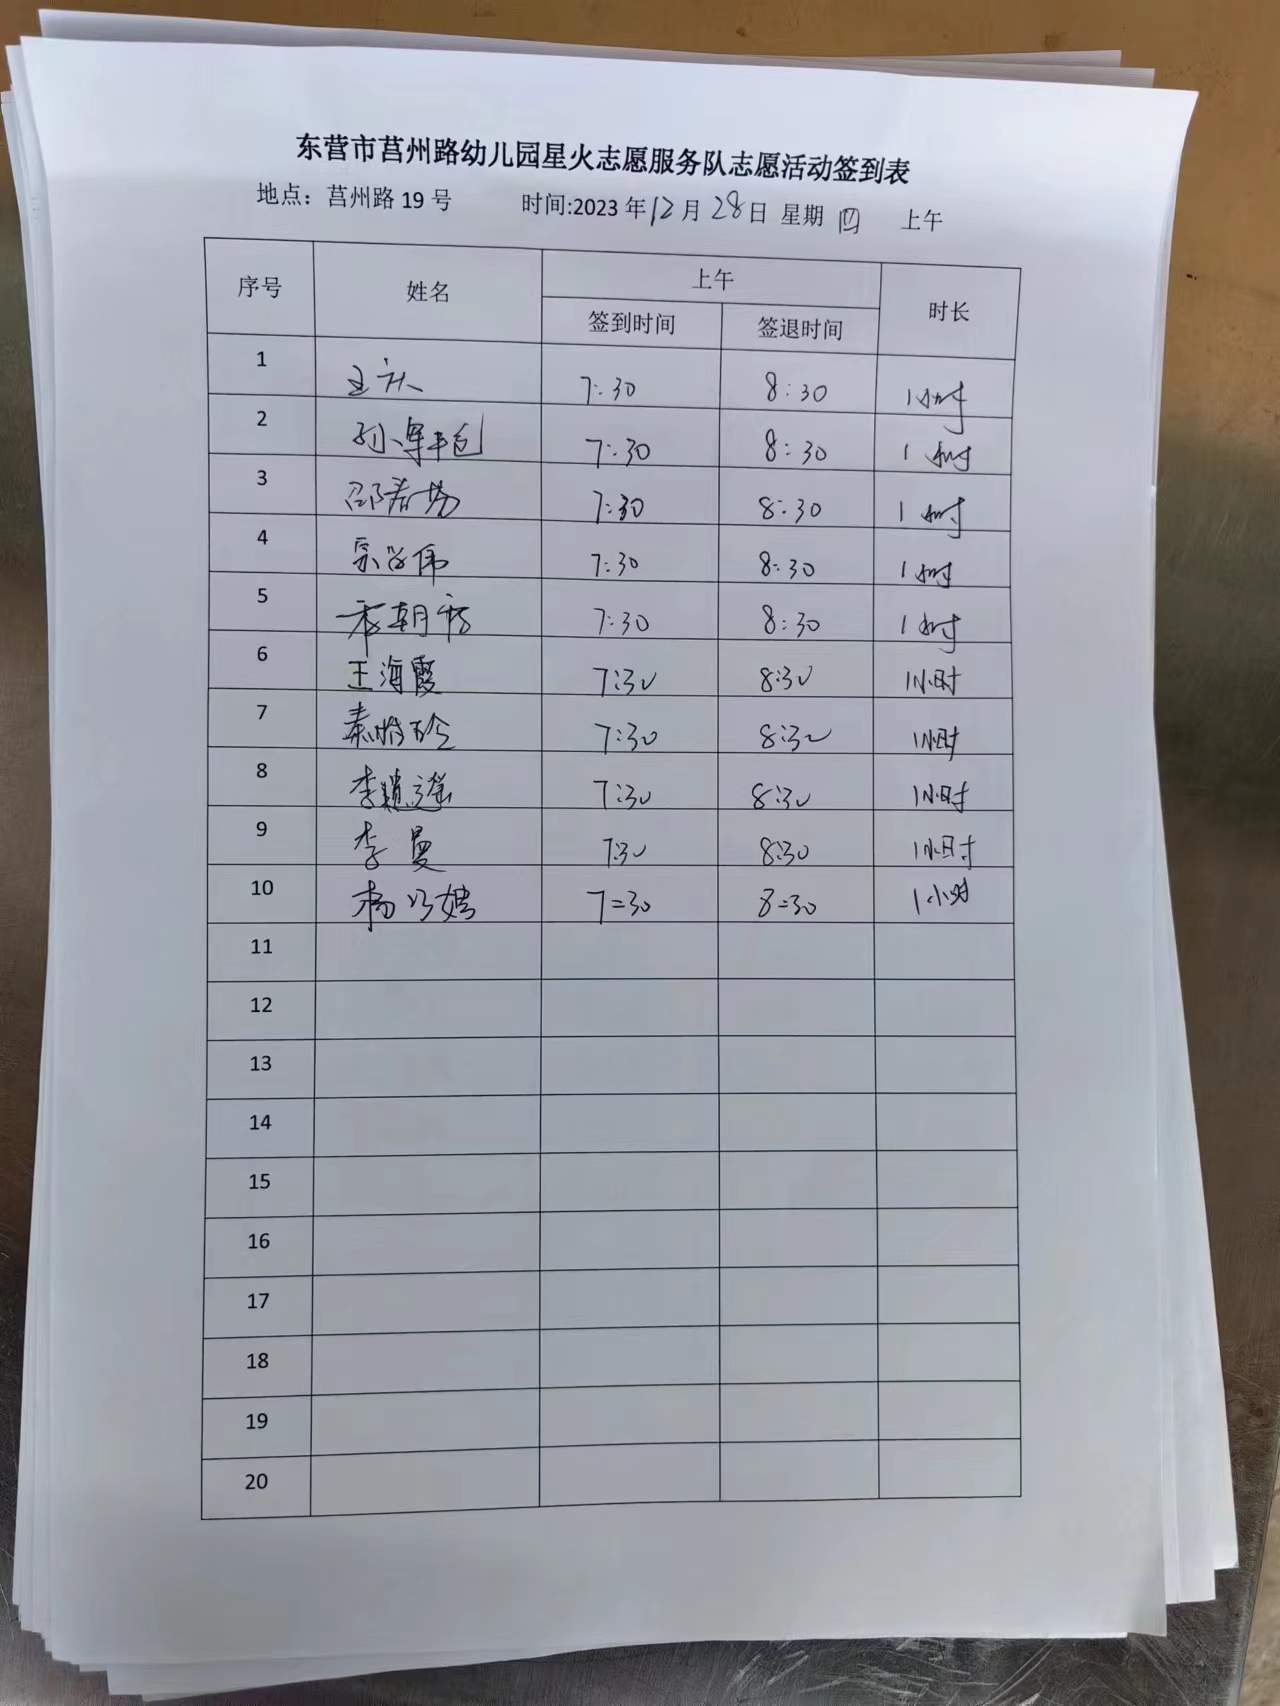 东营市莒州路幼儿园星火志愿服务队志愿活动签到表
地点：莒州路 19 号 时间:2023 年12月 28日 星期 四 上午
序号 姓名 上午 时长
签到时间 签退时间
1 王庆 7:30 8:30 1小时
2 孙 7:30 8:30 1小时
3 邵 7:30 8:30 1小时
4 伟 7:30 8:30 1小时
5 朝 7:30 8:30 1小时
6 王海霞 7:30 8:30 1小时
7 7:30 8:30 1小时
8 李 7:30 8:30 1小时
9 李曼 7:30 8:30 1小时
10 杨 7:30 8:30 1小时
11
12
13
14
15
16
17
18
19
20